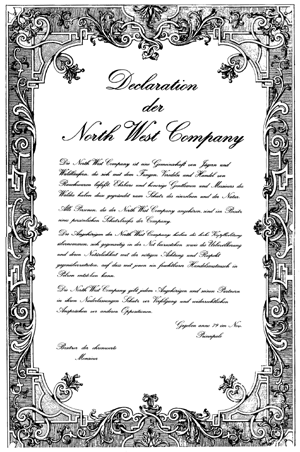 Declaration
der
North West Company
Die North West Company ist eine Gemeinschaft von Jägern und
Waldläufern, die sich mit dem Fangen, Veredeln und Handel von
Rauchwaren befaßt. Ehrbare und honorige Gentlemen und Messieurs des
Waldes haben dazu gegründet zum Schutz der und der Natur.
Alle Personen, die der North West Company angehören, sind im Besitz
eines persönlichen der Company.
Die Angehörigen der North West Company haben die hohe Verpflichtung
übernommen, sich gegenseitig in der Not beizustehen sowie die
und deren mit der nötigen Achtung und Respekt
gegenüberzutreten, auf dass mit jenen ein fruchtbarer Handelsaustausch in
Pelzen entstehen kann.
Die North West Company gibt jedem Angehörigen und seinen Partnern
in ihren Niederlassungen Schutz vor Verfolgung und
Ansprüchen der anderen
Gegeben anno 79 im Nov.
Principale
Besitzer der
Monsieur